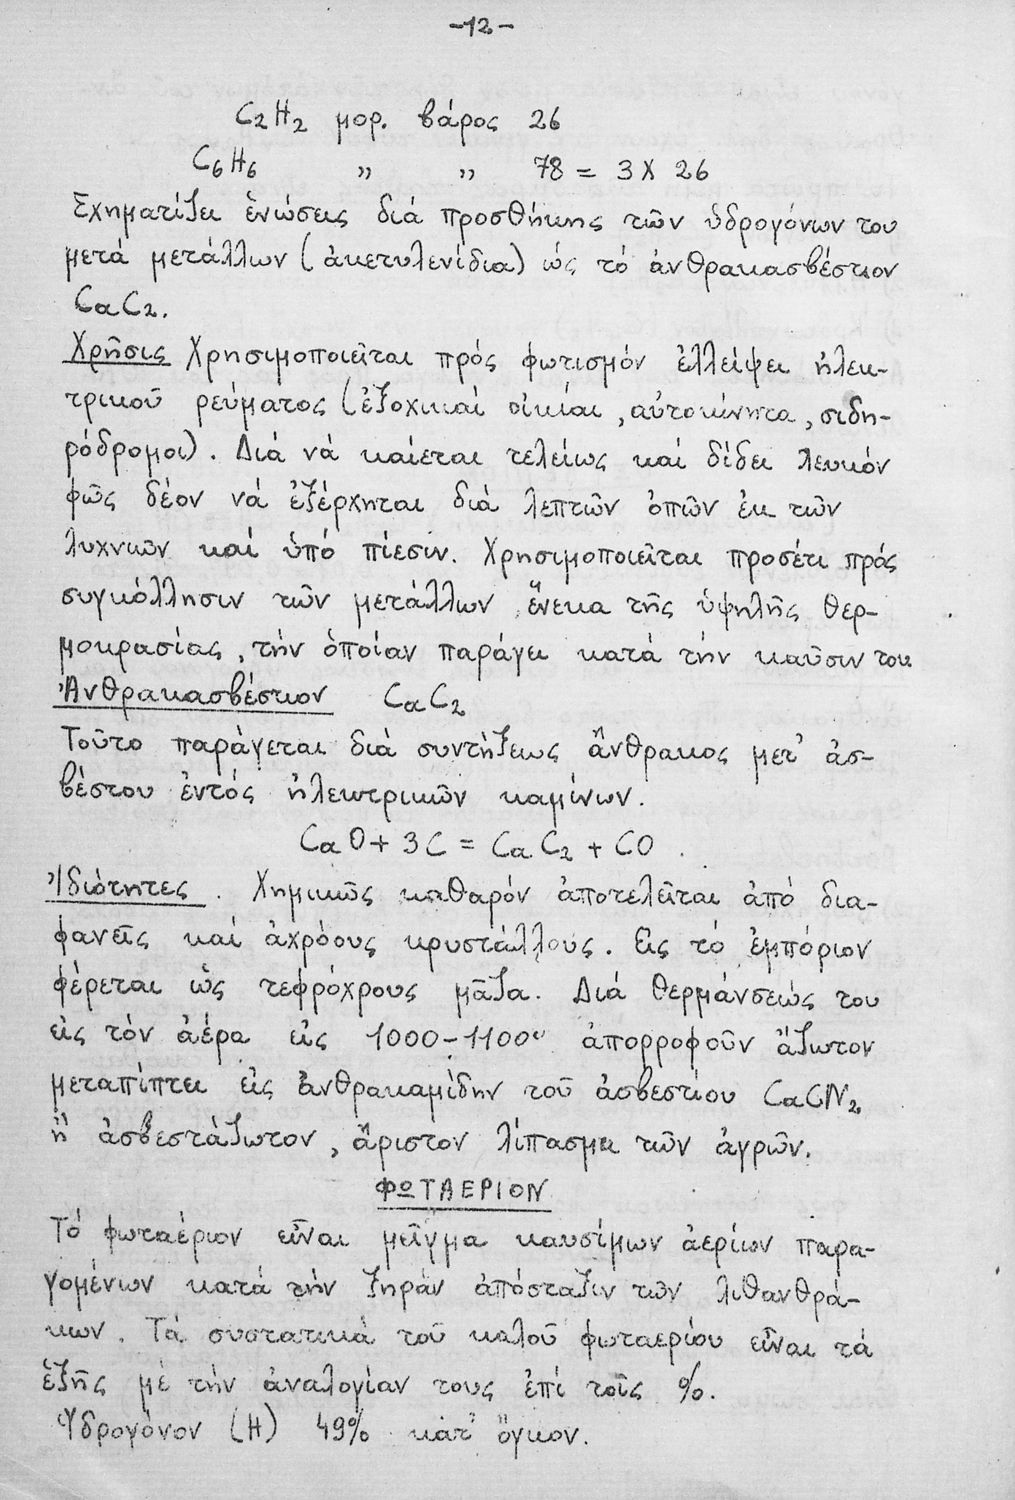 -12-
C2H2 μορ. βάρος 26
C6H6 " " 78 = 3 Χ 26
Σχηματίζει ἑνώσεις διά προσθήκης τῶν ὑδρογόνων του
μετά μετάλλων (ἀκετυλενίδια) ὡς τό ἀνθρακασβέστιον
CaC2.
Χρῆσις Χρησιμοποιεῖται πρός φωτισμόν ἐλλείψει ἠλεκ-
τρικοῦ ρεύματος (ἐξοχικαί οἰκίαι, αὐτοκίνητα, σιδη-
ρόδρομοι). Διά νά καίεται τελείως καί δίδει λευκόν
φῶς δέον νά ἐξέρχηται διά λεπτῶν ὀπῶν ἐκ τῶν
λυχνιῶν καί ὑπό πίεσιν. Χρησιμοποιεῖται προσέτι πρός
συγκόλλησιν τῶν μετάλλων ἕνεκα τῆς ὑψηλῆς θερ-
μοκρασίας, τήν ὁποίαν παράγει κατά τήν καῦσιν του
Ἀνθρακασβέστιον CaC2
Τοῦτο παράγεται διά συντήξεως ἄνθρακος μετ' ἀσ-
βέστου ἐντός ἠλεκτρικῶν καμίνων.
CaO + 3C = CaC2 + CO.
Ἰδιότητες. Χημικῶς καθαρόν ἀποτελεῖται ἀπό δια-
φανεῖς καί ἀχρόους κρυστάλλους. Εἰς τό ἐμπόριον
φέρεται ὡς τεφρόχρους μᾶζα. Διά θερμάνσεώς του
εἰς τόν ἀέρα εἰς 1000-1100° ἀπορροφοῦν ἄζωτον
μεταπίπτει εἰς ἀνθρακαμίδην τοῦ ἀσβεστίου CaCN2
ἤ ἀσβεστάζωτον, ἄριστον λίπασμα τῶν ἀγρῶν.
ΦΩΤΑΕΡΙΟΝ
Τό φωταέριον εἶναι μεῖγμα καυσίμων ἀερίων παρα-
γομένων κατά τήν ξηράν ἀπόσταξιν τῶν λιθανθρά-
κων. Τά συστατικά τοῦ καλοῦ φωταερίου εἶναι τά
ἑξῆς μέ τήν ἀναλογίαν τους ἐπί τοῖς %.
Ὑδρογόνον (Η) 49% κατ' ὄγκον.